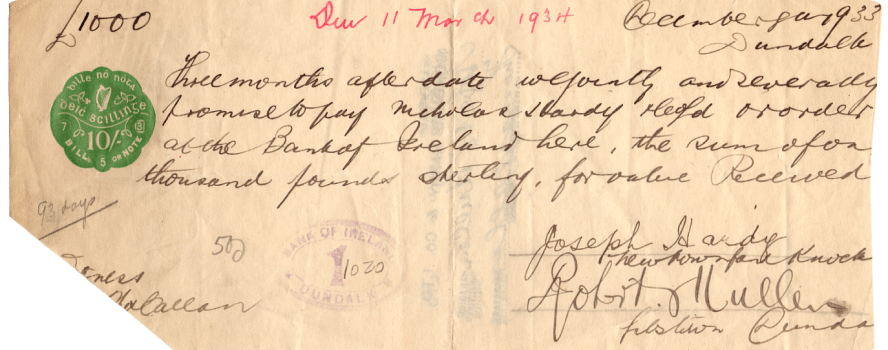 £1000 Due 11 March 1934 December 8th 1933
Dundalk
Three months after date we jointly and severally
promise to pay Nicholas Hardy or order
at the Bank of Ireland here, the sum of on
thousand pounds sterling, for value Received
bille nó nóta
deic scillinge
10/-
BILL OR NOTE
93 days
BANK OF IRELAND
1
1020
DUNDALK
Joseph Hardy
Knock
Robt. Mullen
Dunda
tness
McCallan